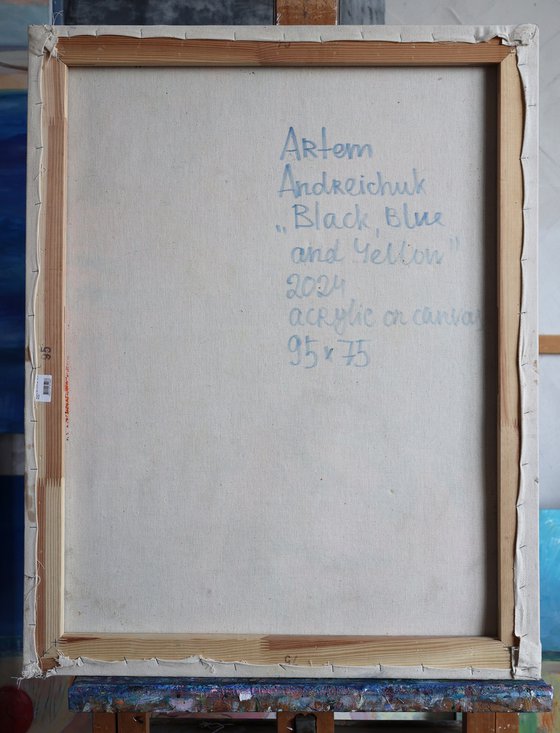 Artem
Andreichuk
„Black, Blue
and Yellow"
2024
acrylic on canvas
95x75
95